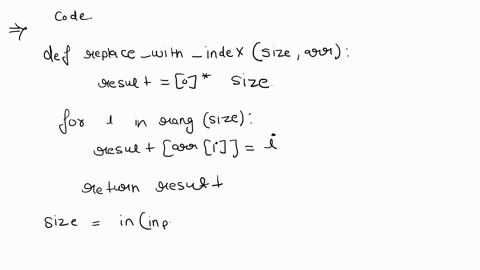 ⇒ Code
def replace_with_index (size, arr):
result = [0]* size
for i in rang (size):
result [arr[i]] = i
return result
size = in(inp